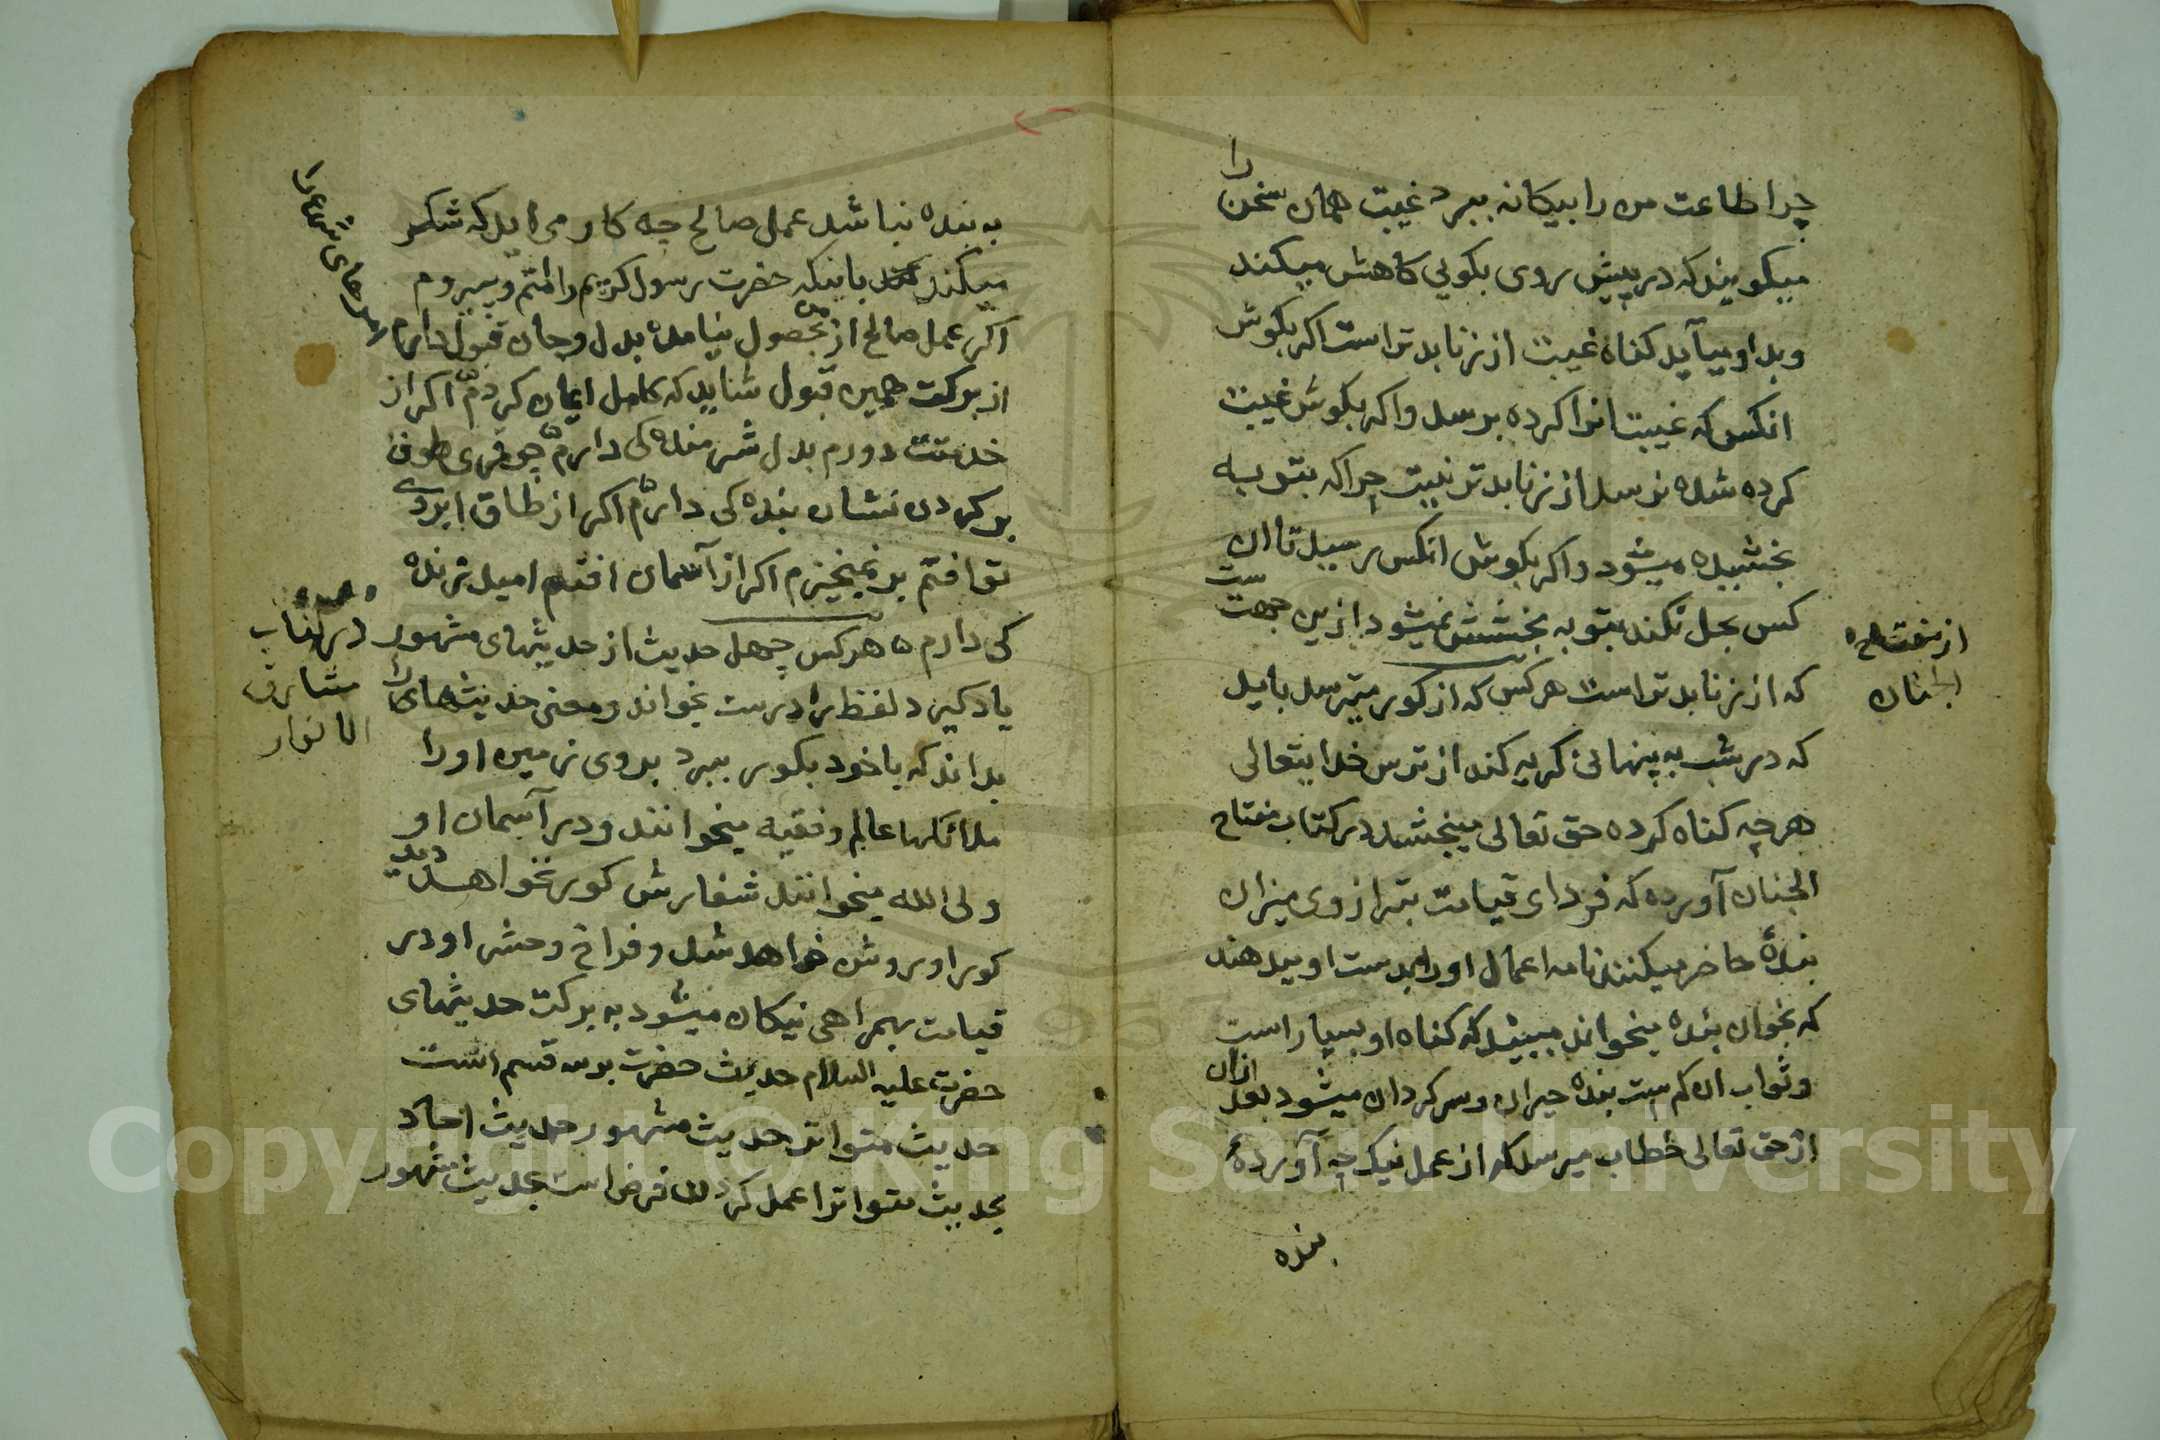 چرا طاعت من را بیکانه ببرد غیبت همان سخن را
میکویند که در پیش روی بکویی کاهش میکند
وبد او میآید کناه غیبت از زنا بدتر است اکر بکوش
انکس که غیبت انرا کرده برسد واکر بکوش غیبت
کرده شده نرسد از زنا بدتر نیست چرا که بتوبه
بخشیده میشود واکر بکوش انکس رسید تا ان
کس بحل نکند بتوبه بخشش نمیشود ازین جهت ست
که از زنا بدتر است هر کس که از کور میترسد باید
که در شب به پنهانی کریه کند از ترس خدایتعالی
هر چه کناه کرده حق تعالی میبخشد در کتاب مفتاح
الجنان آورده که فردای قیامت بترازوی میزان
بندۀ حاضر میکنند نامه اعمال اورا بدست او میدهند
که بخوان بنده میخواند میبیند که کناه او بسیار است
وثواب ان کم است بنده حیران و سرکردان میشود بعد ازان
از حق تعالی خطاب میرسد که از عمل نیک چه آوردۀ
بنده
از مفتاح
الجنان
به بنده نباشد عمل صالح چه کار می اید که شکر
میکند باینکه حضرت رسول کریم را امتم و پیروم
اکر عمل صالح از من بحصول نیامده بدل وجان قبول دارم
از برکت همین قبول شاید که کامل ایمان کردم اکر از
خدمتت دورم بدل شرمنده کی دارم چو قمری طوق
بر کردن نشان بنده کی دارم اکر از طاق ابروی
تو افتم بر نمیخیزم اکر از آسمان افتم امید زنده
کی دارم هر کس چهل حدیث از حدیثهای مشهور
یاد کیرد لفظ را درست بخواند ومعنی حدیثهای را
بداند که با خود بکور ببرد بروی زمین اورا
ملائکها عالم وفقیه میخوانند ودر آسمان او
ولی الله میخوانند شفارش کور نخواهد دید
کور او روشن خواهد شد وفراخ وحشر او در
قیامت بهمراهی نیکان میشود به برکت حدیثهای
حضرت علیه السلام حدیث حضرت بر سه قسم است
حدیث متواتر حدیث مشهور حدیث احاد
بحدیث متواتر عمل کردن فرض است بحدیث مشهور
در کتاب
مشارق
الانوار